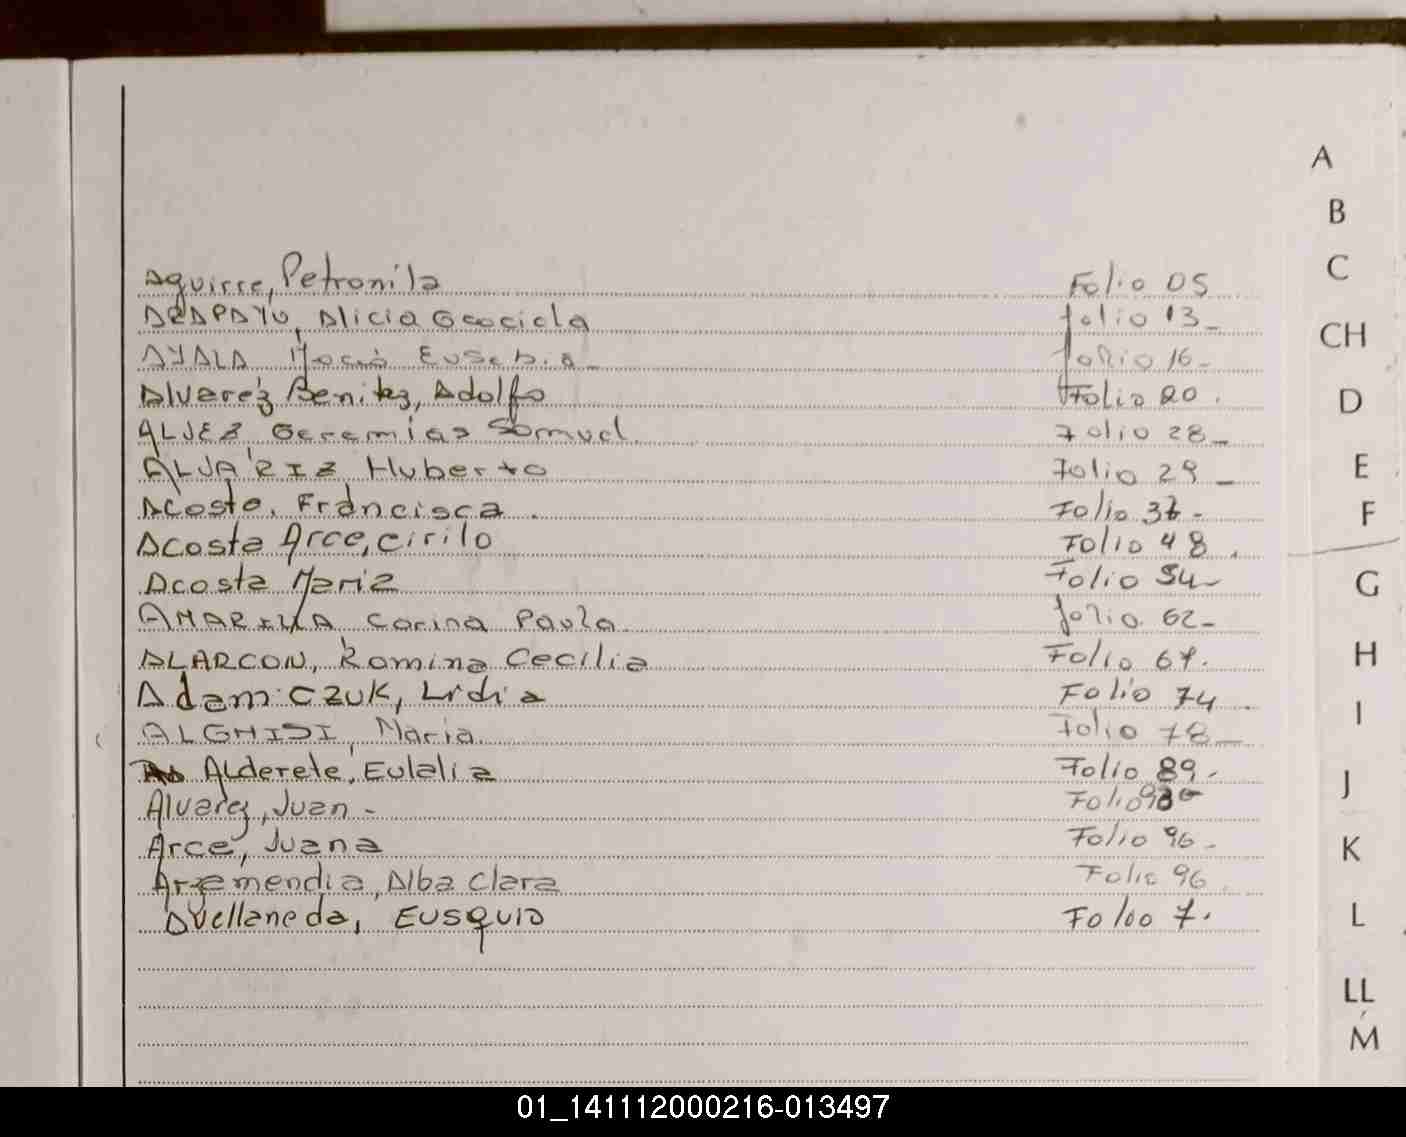 Aguirre, Petronila Folio 05
ARAPAYU, Alicia Folio 13_
AYALA Eusebia_ folio 16_
Alvarez Benitez, Adolfo Folio 20.
ALVEZ Geremias Samuel. Folio 28_
Huberto Folio 29_
Acosta, Francisca. Folio
Acosta Arce, cirilo Folio 48.
Acosta Maria Folio 54_
AMARILLA, Carina Paola. folio. 62_
ALARCON, Romina Cecilia Folio 67.
Adamiczuk, Lidia Folio 74.
ALGHISI, Maria. Folio 78_
Alderete, Eulalia Folio 89.
Alvarez, Juan - Folio
Arce, Juana Folio 96.
Arzamendia, Alba Clara Folio 96.
Avellaneda, EUSQUIO Folio 7.
A
B
C
CH
D
E
F
G
H
I
J
K
L
LL
M
01_141112000216-013497